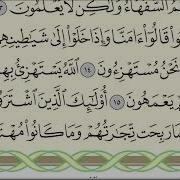 ـم السفهاء ولكن لا يعلمون ١٣
قالوا ءامنا وإذا خلوا إلى شيطينهم
نحن مستهزءون ١٤ الله يستهزئ
يعمهون ١٥ أولئك الذين اشتروا
ربحت تجرتهم وما كانوا مهتد